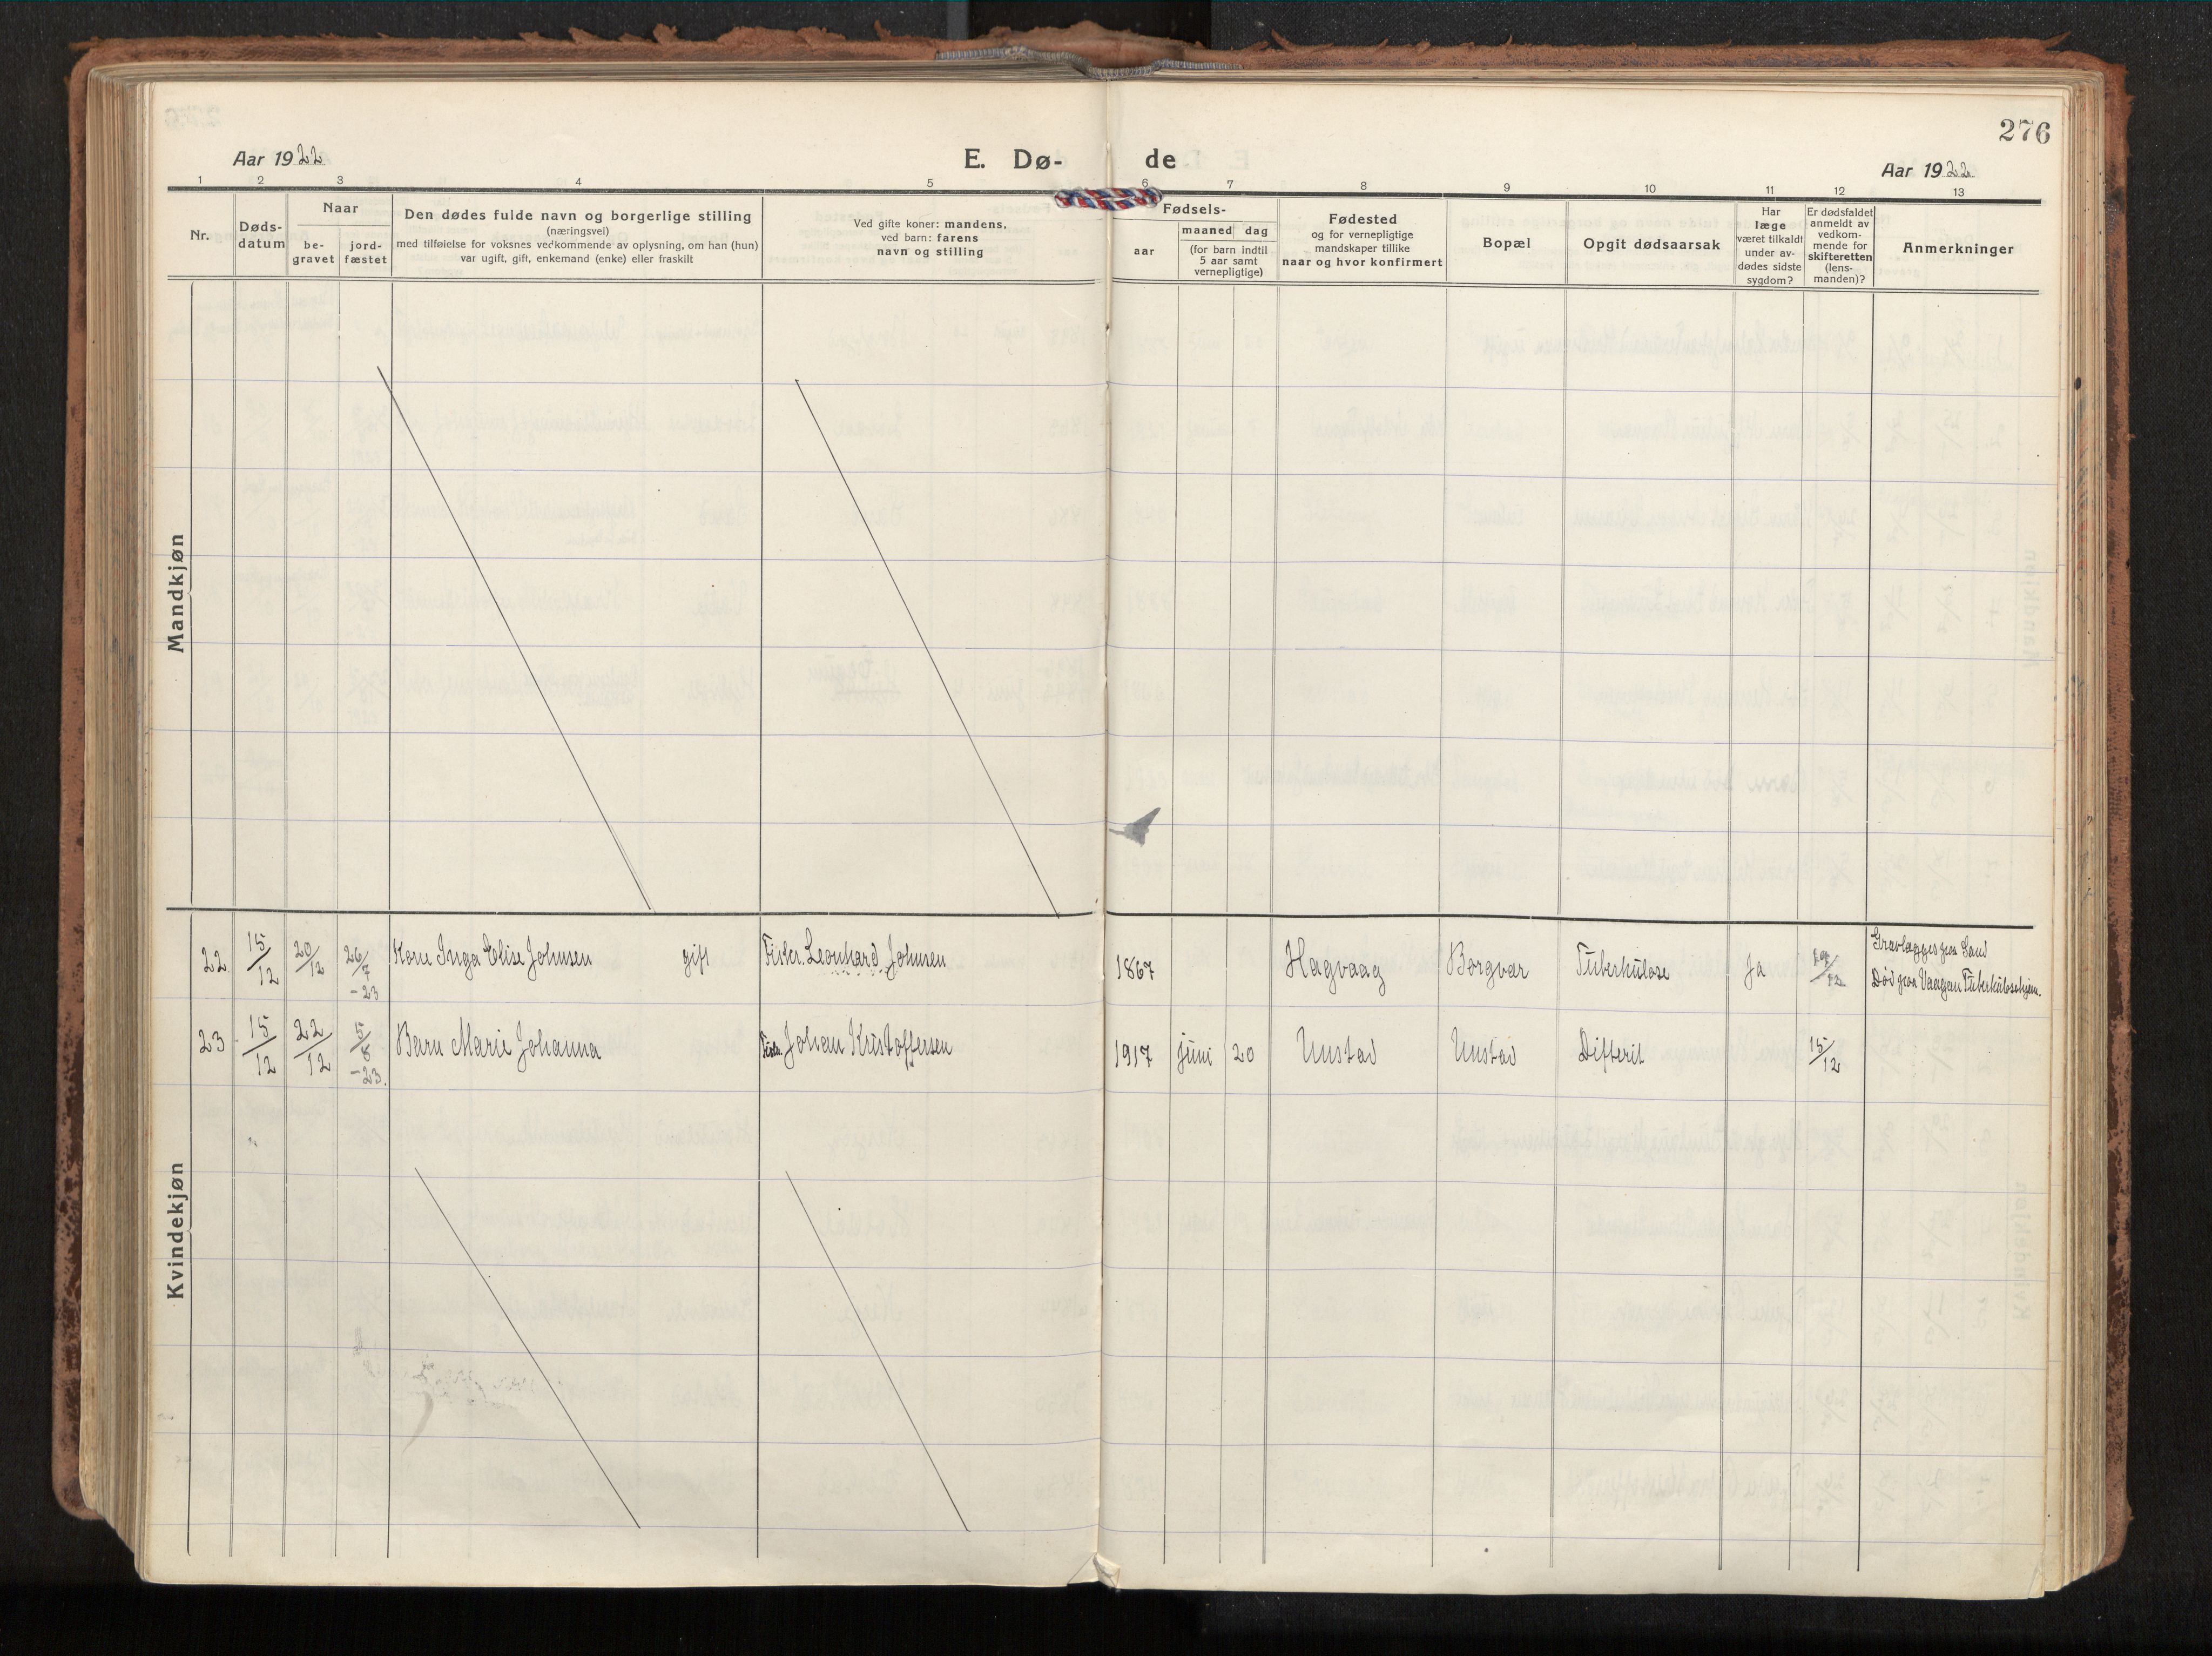 276
Aar 1922 E. Dø- de Aar 1922
1 2 3 4 5 6 7 8 9 10 11 12 13
Nr.
Døds-
datum
Naar
be-
gravet
jord-
fæstet
Den dødes fulde navn og borgerlige stilling
(næringsvei)
med tilføielse for voksnes vedkommende av oplysning, om han (hun)
var ugift, gift, enkemand (enke) eller fraskilt
Ved gifte koner: mandens,
ved barn: farens
navn og stilling
Fødsels-
aar
maaned dag
(for barn indtil
5 aar samt
vernepligtige)
Fødested
og for vernepligtige
mandskaper tillike
naar og hvor konfirmert
Bopæl
Opgit dødsaarsak
Har
læge
været tilkaldt
under av-
dødes sidste
sygdom?
Er dødsfaldet
anmeldt av
vedkom-
mende for
skifteretten
(lens-
manden)?
Anmerkninger
Mandkjøn
22 15/12 20/12 26/7 -23 Kone Inga Elise Johnsen gift Fisker Leonhard Johnsen 1867 Hagvaag Borgvar Tuberkulose Ja 19/12 Gravlægges paa Sand
Død paa Vaagan Tuberkulosehjem.
23 15/12 22/12 5/8 -23. Barn Marie Johanna Fisker Johan Kristoffersen 1917 juni 20 Unstad Unstad Difterit 15/12
Kvindekjøn